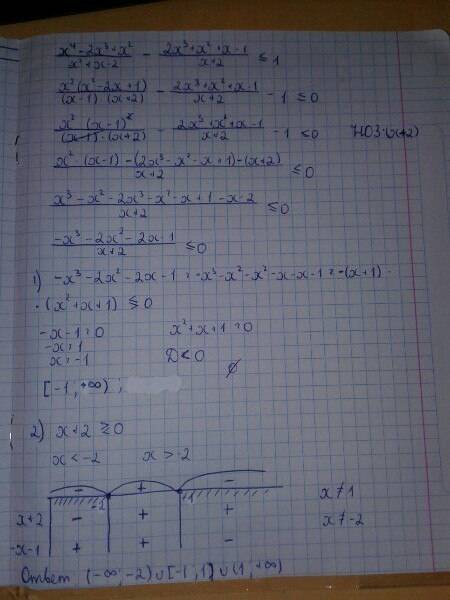 x⁴-2x³+x² / x²+x-2 - 2x³+x²+x-1 / x+2 ≤ 1
x²(x²-2x+1) / (x-1)·(x+2) - 2x³+x²+x-1 / x+2 - 1 ≤ 0
x²(x-1)² / (x-1)·(x+2) - 2x³+x²+x-1 / x+2 - 1 ≤ 0 НОЗ:(x+2)
x²(x-1)-(2x³-x²-x+1)-(x+2) / x+2 ≤ 0
x³-x²-2x³-x²-x+1-x-2 / x+2 ≤ 0
-x³-2x²-2x-1 / x+2 ≤ 0
1) -x³-2x²-2x-1 = -x³-x²-x²-x-x-1 = -(x+1)·
·(x²+x+1) ≤ 0
-x-1=0 x²+x+1=0
-x=1 D<0
x=-1 ∅
[-1;+∞);
2) x+2 ≥ 0
x<-2 x>-2
- + -
-2 -1 x≠1
x+2 - + + x≠-2
-x-1 + + -
Ответ (-∞;-2)∪[-1;1)∪(1;+∞)